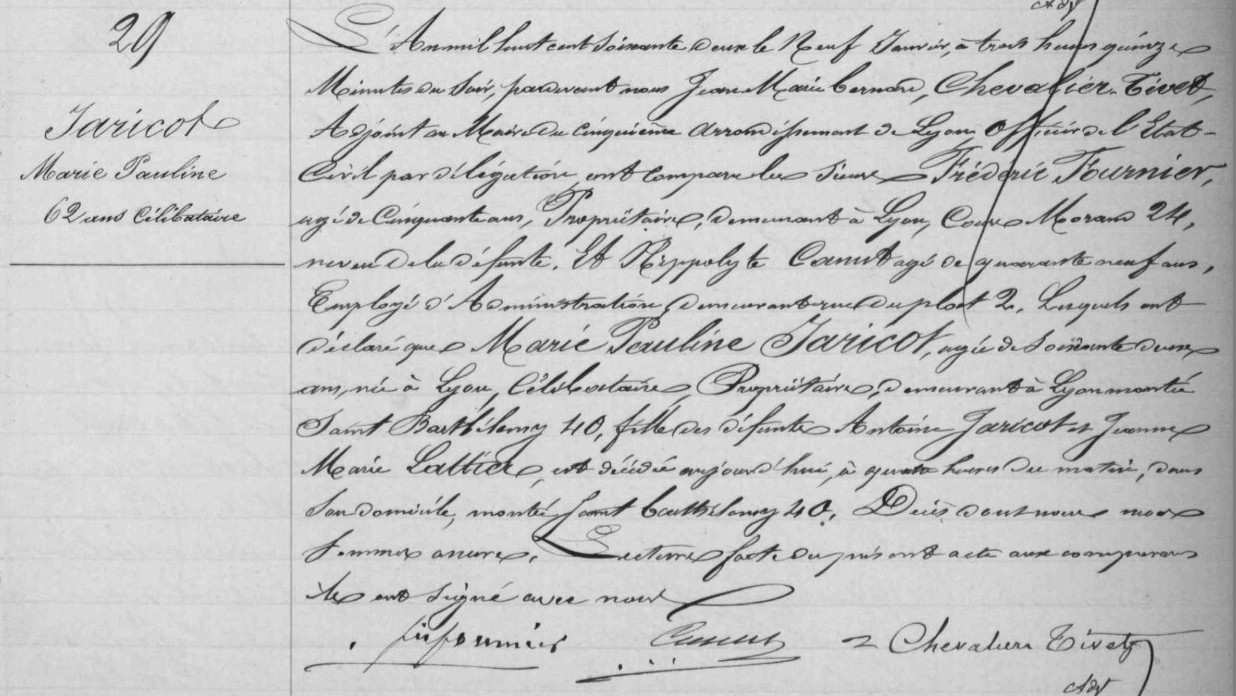 29
Jaricot
Marie Pauline
62 ans Célibataire
L'An mil huit cent Soixante deux le Neuf Janvier, à trois heures quinze
Minutes du Soir, pardevant nous Jean Marie Bernard, Chevalier-Tivet,
Adjoint au Maire du Cinquième arrondissement de Lyon, Officier de l'Etat-
Civil par délégation, ont comparu les Sieurs Frédéric Fournier,
agé de Cinquante ans, Propriétaire, demeurant à Lyon, Cours Morand 24,
neveu de la défunte, Et Hippolyte Canut agé de quarante neuf ans,
Employé d'Administration, demeurant rue du plat 2, Lesquels ont
déclaré que Marie Pauline Jaricot, agée de Soixante deux
ans, née à Lyon, Célibataire, Propriétaire, demeurant à Lyon montée
Saint Barthélemy 40, fille des défunts Antoine Jaricot et Jeanne
Marie Lattier, est décédée aujourd'hui, à quatre heures du matin, dans
Son domicile, montée Saint Barthélemy 40, Décès dont nous nous
Sommes assuré. Lecture faite du présent acte aux comparans
ils ont Signé avec nous
fr fournier Canut Chevalier Tivet
Adjt